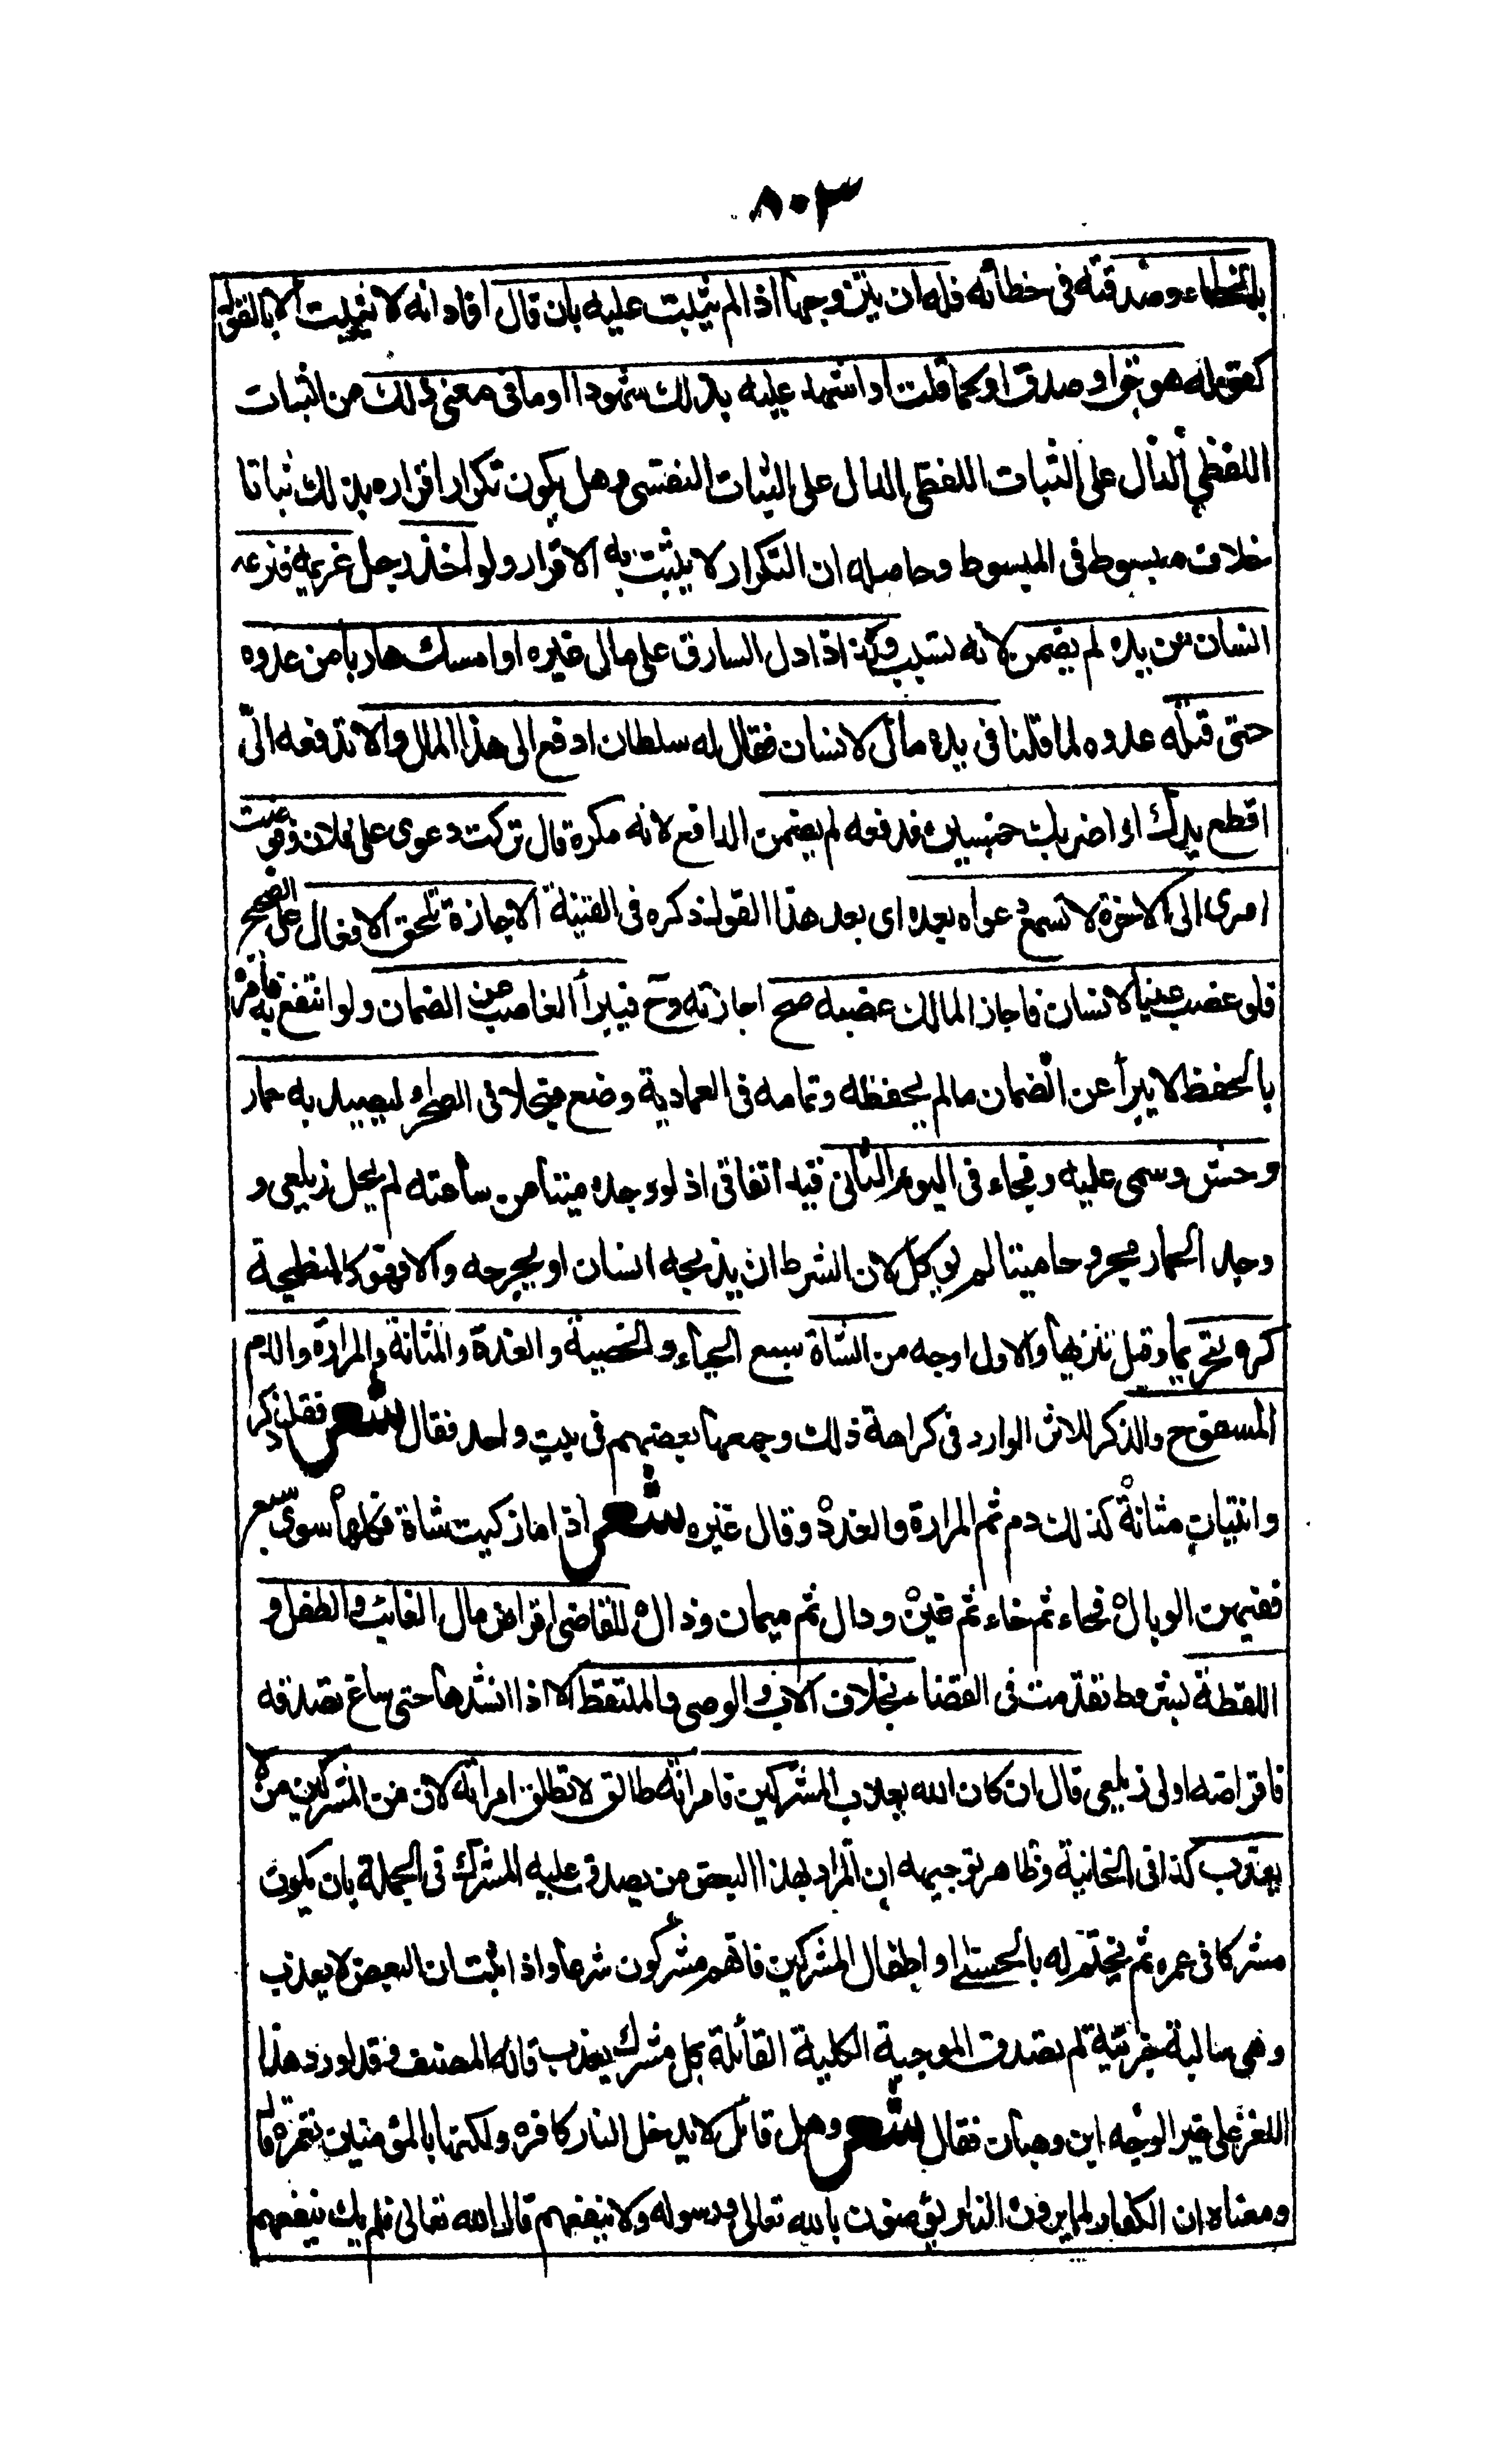 ٨٠٣
بالخطاء وصدقته في خطائه فله ان يتزوجها اذا لم يثبت عليه بان قال افاد انه لا يثبت الا بالقول
كقوله هو حق او صدق او كما قلت او اشهد عليه بذلك شهودا او ما في معنى ذلك من الثبات
اللفظي الدال على الثبات اللفظي الدال على الثبات النفسي وهل يكون تكرار اقراره بذلك ثباتا
خلاف مبسوط في المبسوط وحاصله ان التكرار لا يثبت به الاقرار ولو اخذ رجل غريمه فنزعه
انسان من يده لم يضمن لانه تسبب وكذا اذا دل السارق على مال غيره او امسك هاربا من عدوه
حتى قتله عدوه لما قلنا في يده مال لانسان فقال له سلطان ادفع الى هذا المال والا تدفعه الىّ
اقطع يدك او اضربك خمسين فدفعه لم يضمن الدافع لانه مكره قال تركت دعوى على فلان وفوضت
امرى الى الاخرة لا تسمع دعواه بعده اى بعد هذا القول ذكره في القنية الاجازة تلحق الافعال على الصحيح
فلو غصب عينا لانسان فاجاز المالك غصبه صح اجازته وح فيبرأ الغاصب عن الضمان ولو انتفع به فامره
بالحفظ لا يبرأ عن الضمان ما لم يحفظه وتمامه في العمادية وضع منجلا في الصحراء ليصيد به حمار
وحش وسمى عليه وجاء في اليوم الثاني قيد اتفاقي اذ لو وجده ميتا من ساعته لم يحل زيلعي و
وجد الحمار مجروحا ميتا لم يوكل لان الشرط ان يذبحه انسان او يجرحه والا فهو كالنطيحة
كره تحريما وقيل تنزيها والاول اوجه من الشاة سبع الحياء والخصية والغدة والمثانة والمرارة والدم
المسفوح والذكر للاثر الوارد في كراهة ذلك وجمعها بعضهم في بيت واحد فقال شعر فقل ذكر
وانثيان مثانة كذلك دم ثم المرارة والغدد وقال غيره شعر اذا ما ذكيت شاة فكلها سوى سبع
ففيهن الوبال فحاء ثم خاء ثم غين ودال ثم ميمان وذال للقاضي اقراض مال الغائب والطفل و
اللقطة بشروط تقدمت في القضاء بخلاف الاب والوصى والملتقط الا اذا انشدها حتى ساغ تصدقه
فاقراضه اولى زيلعي قال ان كان الله يعذب المشركين فامرأته طالق لا تطلق امرأته لان من المشركين من لا
يعذب كذا في الخانية وظاهر توجيهه ان المراد بهذا البعض من يصدق عليه المشرك في الجملة بان يكون
مشركا في عمره ثم يختم له بالحسنى او اطفال المشركين فانهم مشركون شرعا واذا ثبت ان البعض لا يعذب
وهي سالبة جزئية لم تصدق الموجبة الكلية القائلة بكل مشرك يعذب قاله المصنف وقد اورد هذا
اللغز على غير الوجه ابن وهبان فقال شعر وهل قائل لا يدخل النار كافر ولكنها بالمؤمنين تعمر قال
ومعناه ان الكفار لما يرون النار يؤمنون بالله تعالى ورسوله ولا ينفعهم قال الله تعالى فلم يك ينفعهم